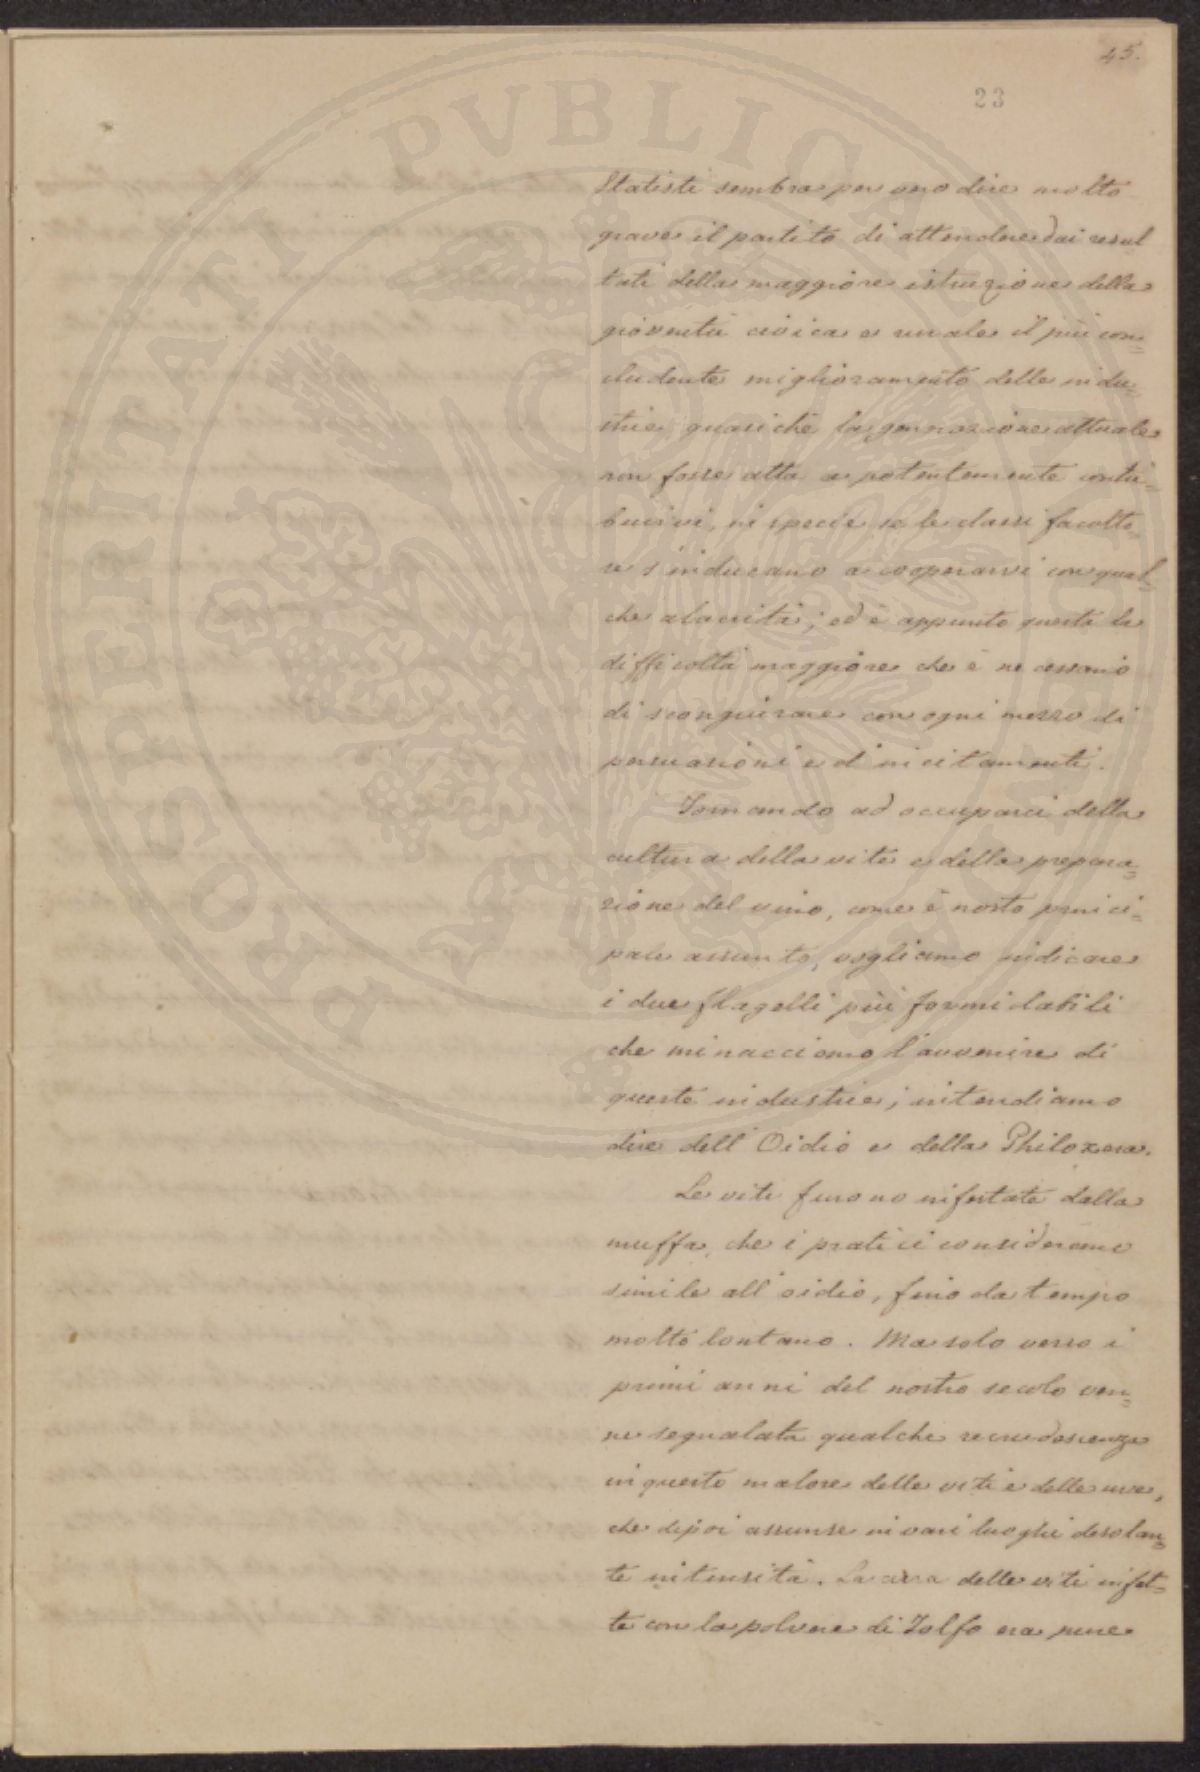 45.
23
Statisti sembra per vero dire molto
grave il partito di attendere dai resul
tati della maggiore istruzione della
gioventù civica e rurale il più con=
cludente miglioramento delle indu=
strie, quasiché la generazione attuale
non fosse atta a potentemente contri=
buirvi, in specie se le classi facolto
se s'inducano a cooperarvi con qual=
che alacrità; ed è appunto questa la
difficoltà maggiore che è necessario
di scongiurare con ogni mezzo di
persuasioni e d'incitamenti.
Tornando ad occuparci della
cultura della vite e della prepara=
zione del vino, come è nostro princi=
pale assunto, vogliamo indicare
i due flagelli più formidabili
che minacciano l'avvenire di
queste industrie; intendiamo
dire dell'Oidio e della Philoxera.
Le viti furono infestate dalla
muffa, che i pratici considerano
simile all'oidio, fino da tempo
molto lontano. Ma solo verso i
primi anni del nostro secolo ven=
ne segnalata qualche recrudescenza
in questo malore delle viti e delle uve,
che dipoi assunse in vari luoghi desolan=
te intensità. La cura delle viti infet=
te con la polvere di Zolfo era pure
PROSPERITATI PVBLICAE